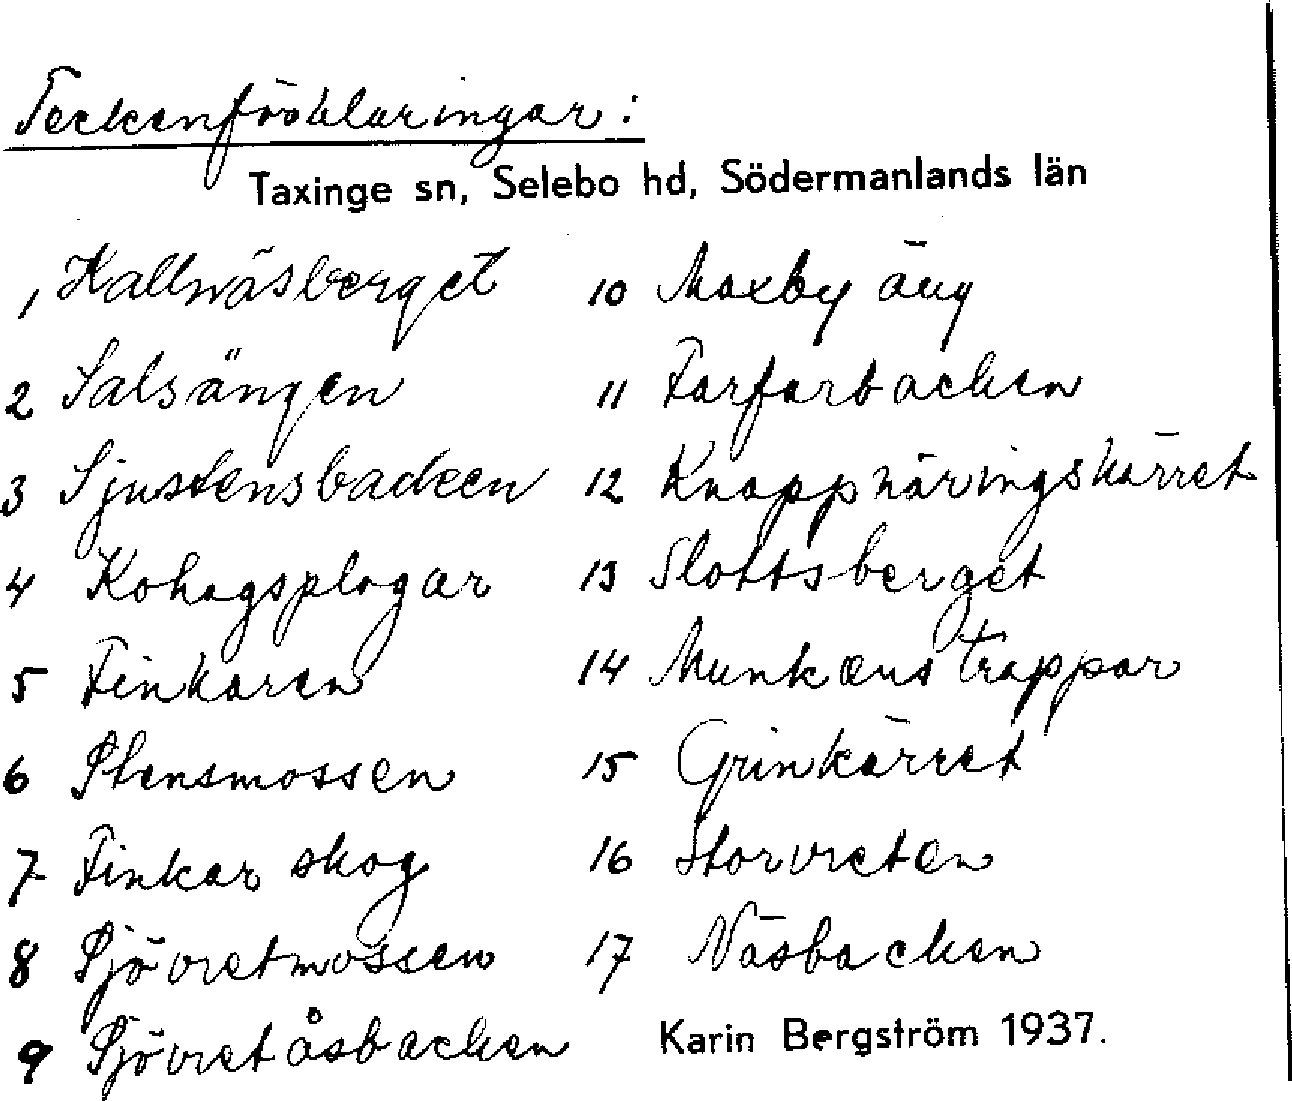 Teckenförklaringar:
Taxinge sn, Selebo hd, Södermanlands län
1, Hallnäsberget
2 Salsängen
3 Sjustensbacken
4 Kohagsplogar
5 Finkaren
6 Stensmossen
7 Finkar skog
8 Sjövretmossen
9 Sjövretåsbacken
10 Maxby äng
11 Farfarbacken
12 Knappnäringskärret
13 Slottsberget
14 Munkens trappor
15 Grinkärret
16 Storvreten
17 Näsbacken
Karin Bergström 1937.